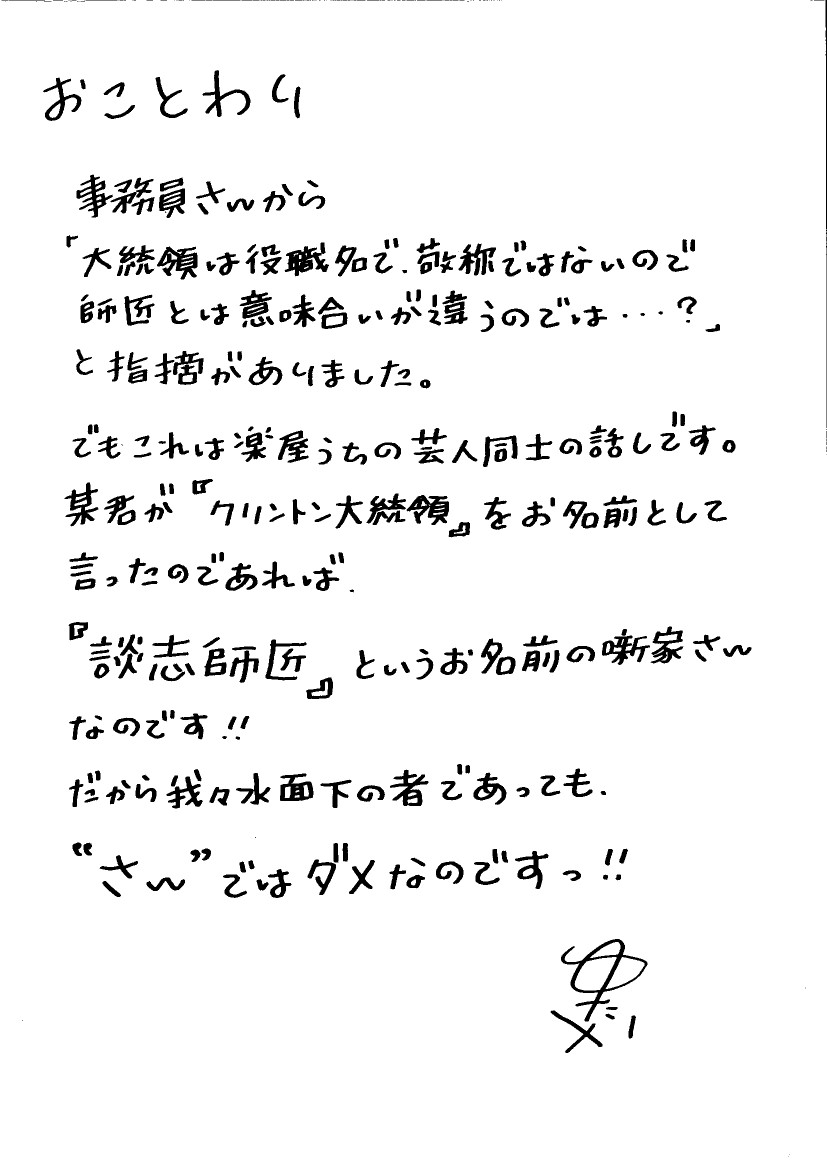 おことわり
事務員さんから
「大統領は役職名で、敬称ではないので
師匠とは意味合いが違うのでは…?」
と指摘がありました。
でもこれは楽屋うちの芸人同士の話しです。
某君が『クリントン大統領』をお名前として
言ったのであれば、
『談志師匠』というお名前の噺家さん
なのです!!
だから我々水面下の者であっても、
“さん”ではダメなのですっ!!